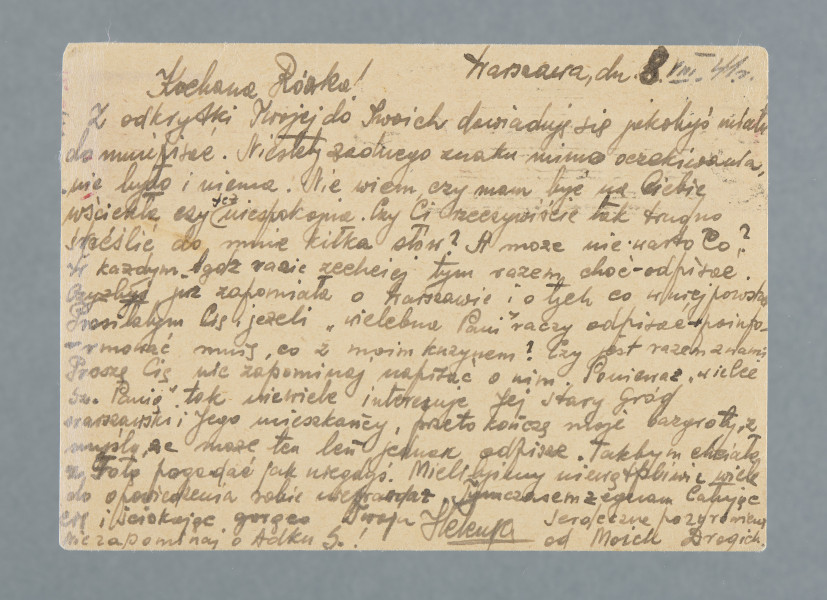 Warszawa, dn. 8. VIII. 41 r.
Kochana Rózka!
Z odkrytki Twojej do Swoich dowiaduję się jakobyś miała
do mnie pisać. Niestety żadnego znaku mimo oczekiwania,
nie było i niema. Nie wiem, czy mam być na Ciebie
wściekła czy też niespokojna. Czy Ci rzeczywiście tak trudno
skreślić do mnie kilka słów? A może nie warto? Co?
W każdym bądź razie zechciej tym razem choć odpisać.
Czyżbyś już zapomniała o Warszawie i o tych co w niej
Prosiłabym Cię jeżeli "wielebna Pani" raczy odpisać poinfo-
rmować mnię, co z moim kuzynem? Czy jest razem z wami
Proszę Cię nie zapominaj napisać o nim. Ponieważ "wielce
Sz. Panią" tak niewiele interesuje Jej stary gród
warszawski i Jego mieszkańcy, przeto kończę moje bazgroły, z
myślą, że może ten leń jednak odpisze. Takbym chciała
z Tobą pogadać jak niegdyś. Miałybyśmy niewątpliwie wiele
do opowiedzenia sobie nieprawdaż. Tymczasem żegnam Całując
Cię i ściskając gorąco Twoja Helenka Serdeczne pozdrowienia
Nie zapominaj o Adku S.! od Moich Drogich.